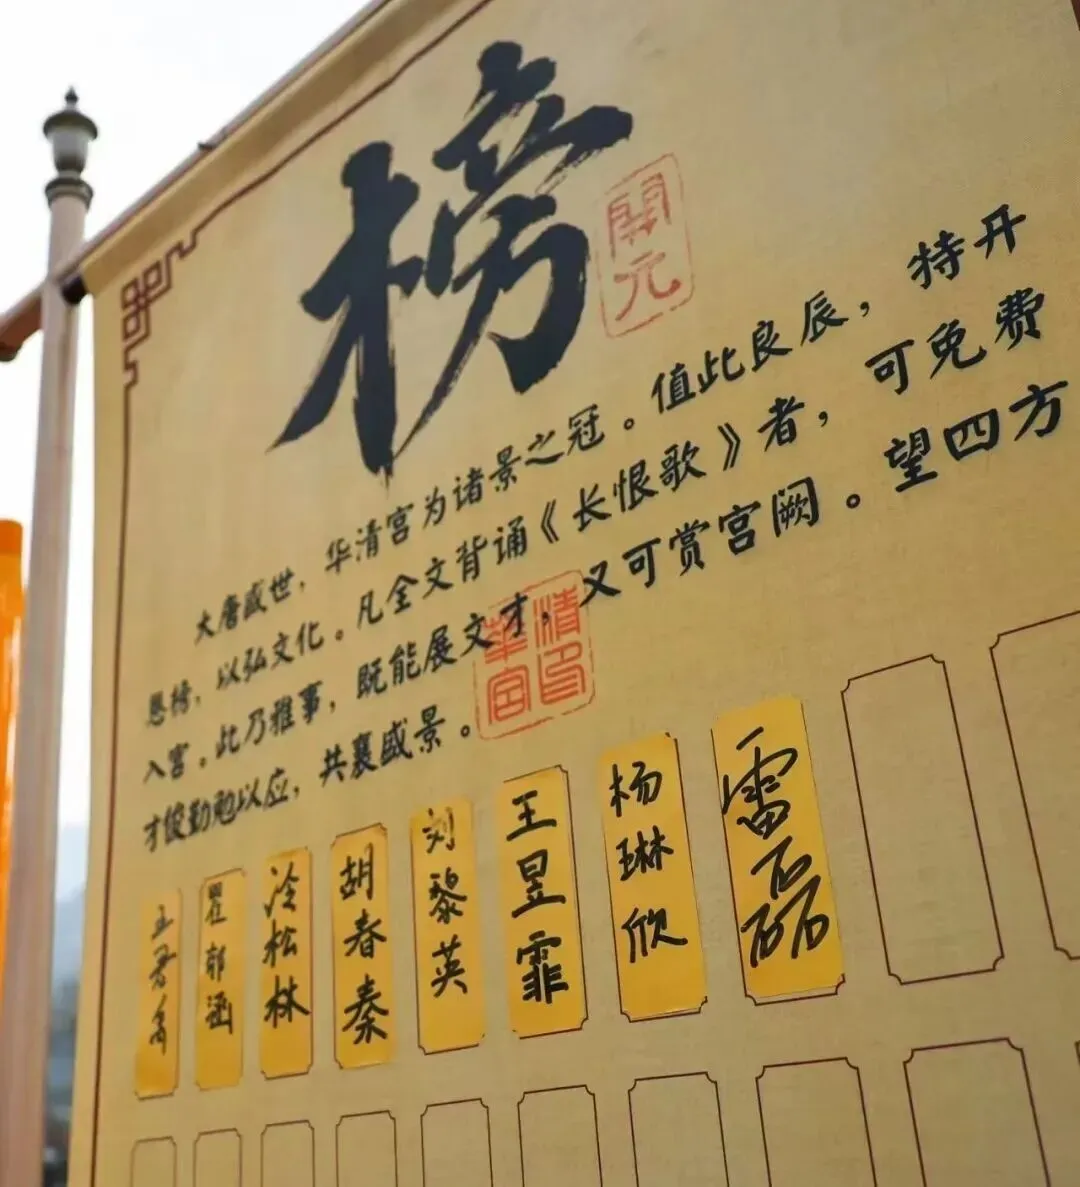 榜
開元
大唐盛世，华清宫为诸景之冠。值此良辰，特开
恩榜，以弘文化。凡全文背诵《长恨歌》者，可免费
入宫。此乃雅事，既能展文才，又可赏宫阙。望四方
才俊勤勉以应，共襄盛景。
华清宫印
瞿郁涵
冷松林
胡春秦
刘黎英
王昱霏
杨琳欣
雷磊